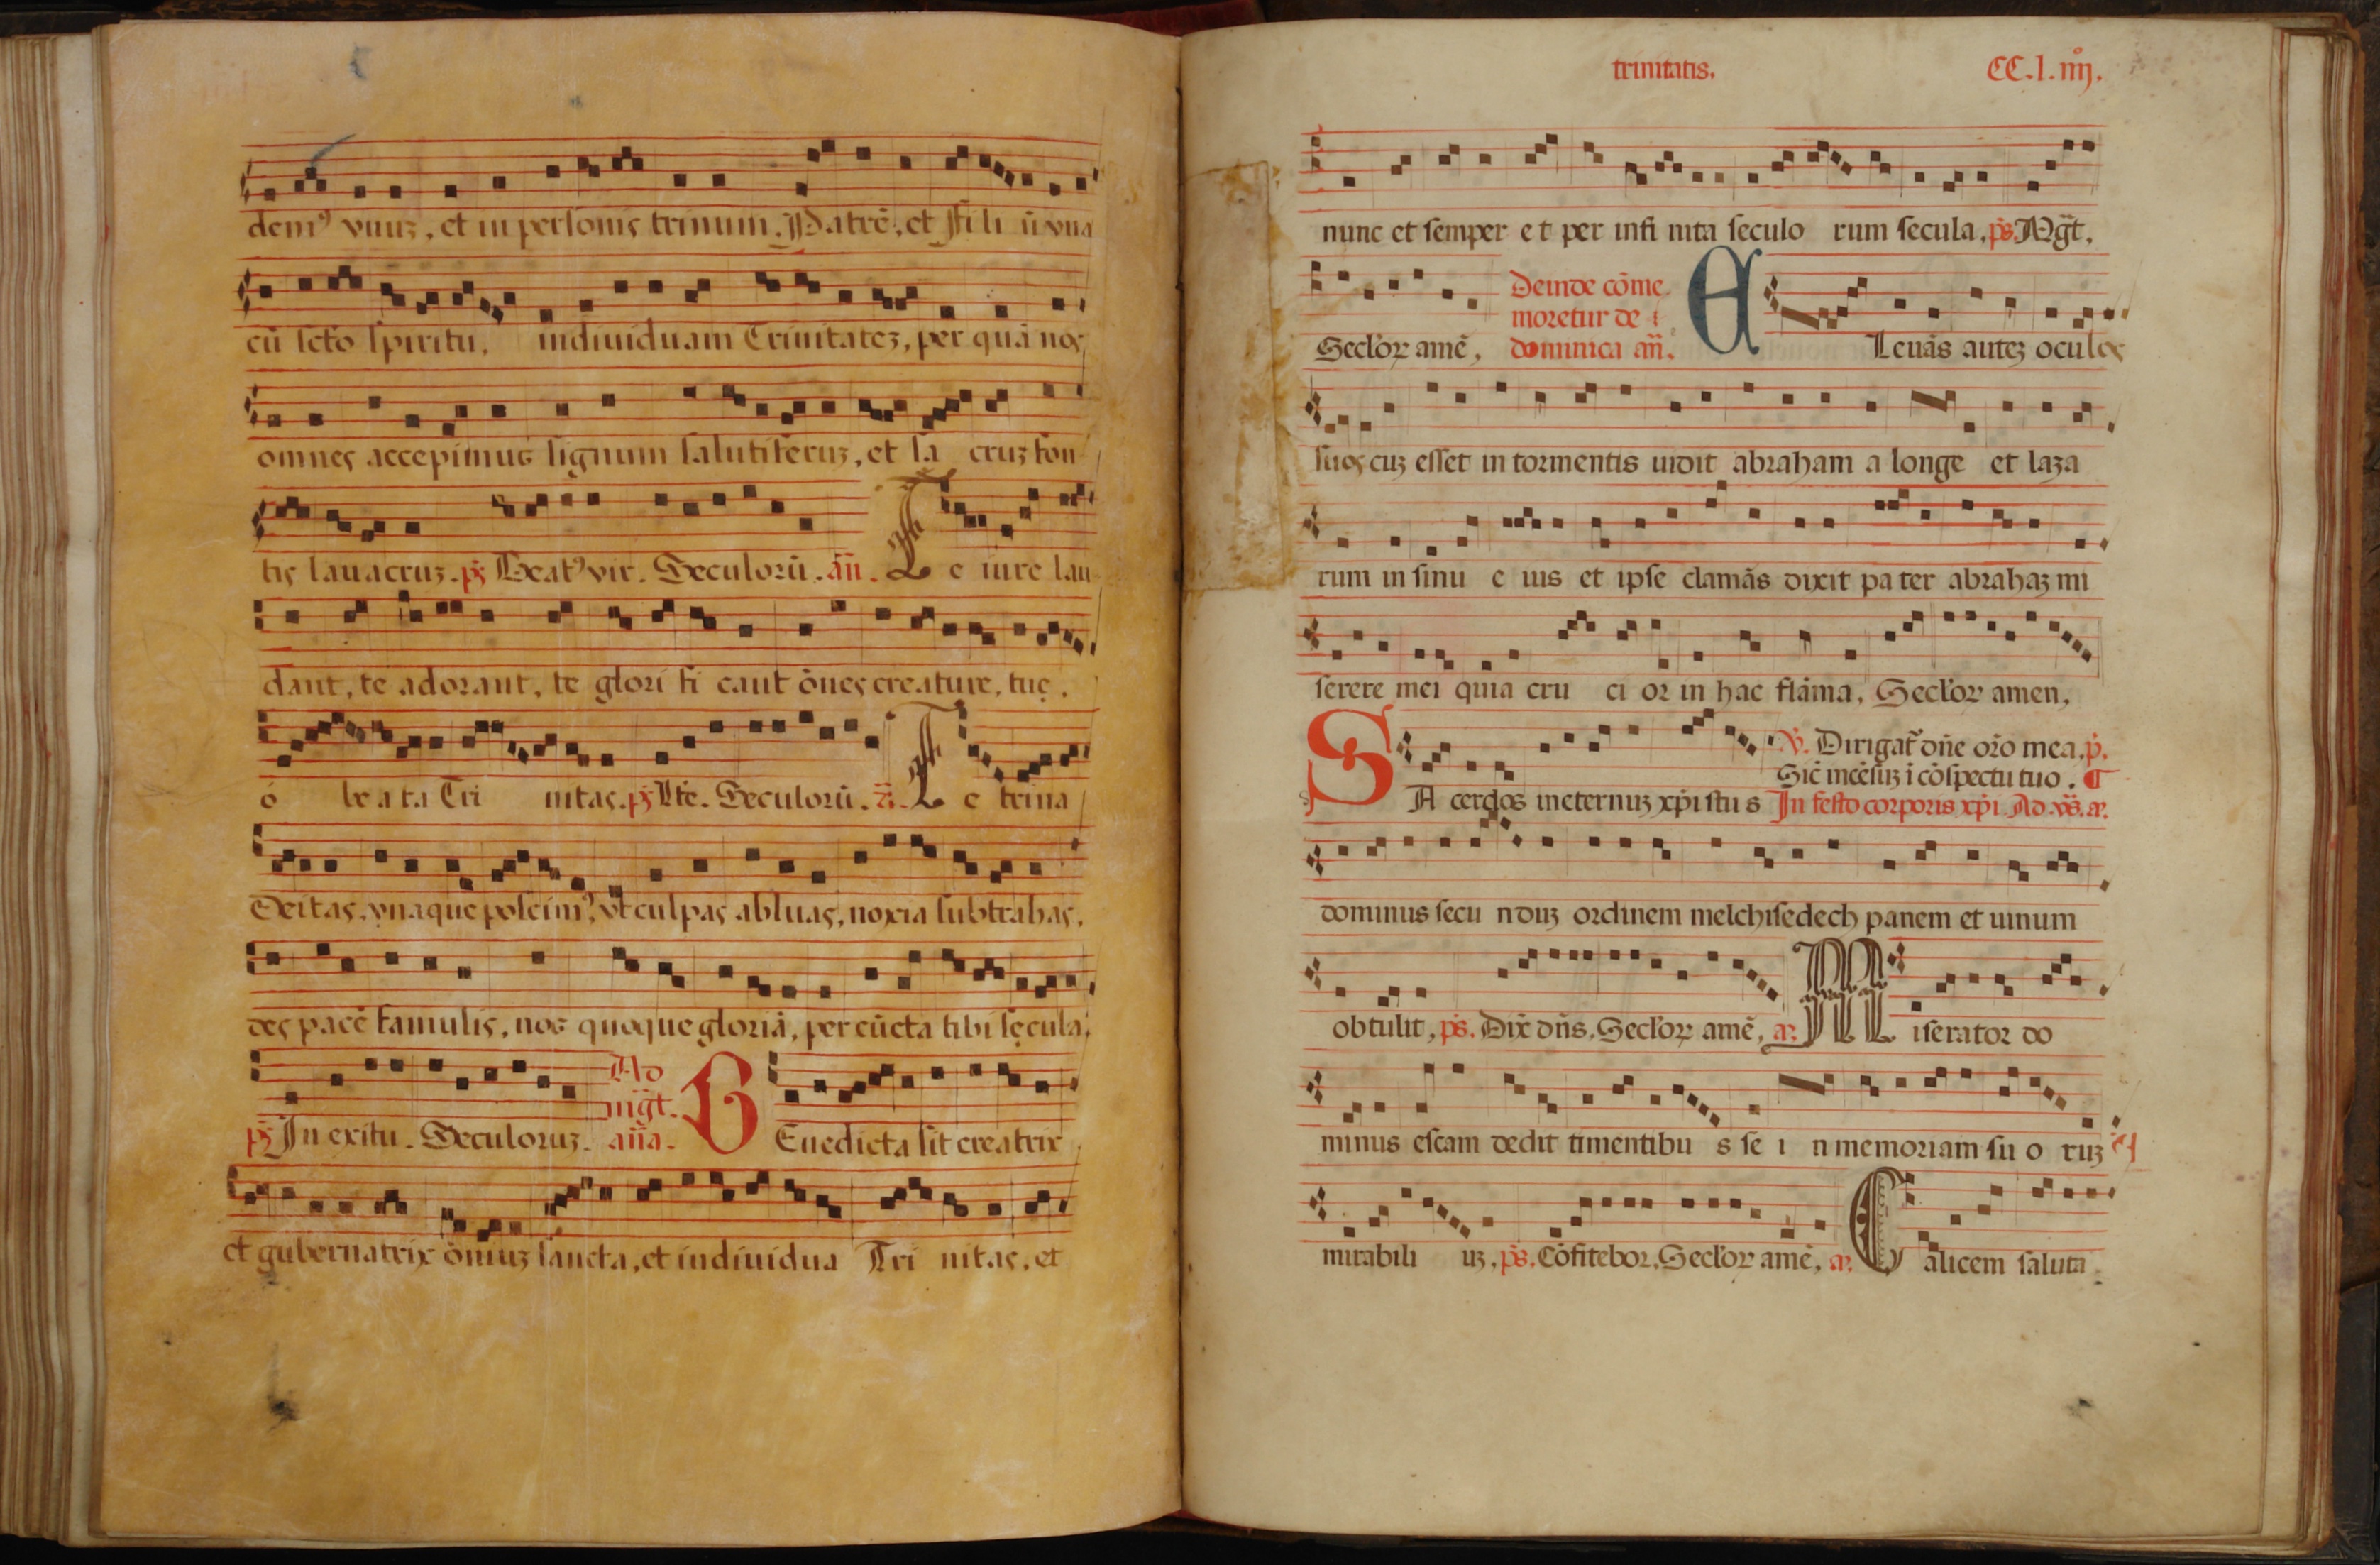 demꝰ vnuʒ, et in personis trinum. Patrē, et Fili ū vna
cū scto spiritu, indiuiduam Trinitateʒ, per quā nos
omnes accepimus signum salutiferuʒ, et sa cruʒ fon
tis lauacruʒ. ps Beatꝰ vir. Seculorū. añ. Te iure lau
dant, te adorant, te glori fi cant ōnes creature, tuę,
ó be a ta Tri nitas. ps Ite. Seculorū. a. Te trina
Deitas, vnaque poscimꝰ, vt culpas abluas, noxia subtrahas,
des pacē famulis, nos quoque gloriā, per cūcta tibi sęcula,
Ad
mgt.
ps In exitu. Seculoruʒ. aña. BEnedicta sit creatrix
et gubernatrix ōniuʒ sancta, et indiuidua Tri nitas, et
trinitatis. CC.l.iiij.
nunc et semper et per infi nita seculo rum secula, ps. Mgt.
Deinde cōme
moretur de
Seclor amē, dominica añ. ELeuās auteʒ oculos
suos cuʒ esset in tormentis uidit abraham a longe et laza
rum in sinu e ius et ipse clamās dixit pa ter abrahaʒ mi
serere mei quia cru ci or in hac flāma, Seclor amen,
V. Dirigat dñe orō mea. p.
Sic incēsuʒ i cōspectu tuo.
SA cerdos in eternuʒ xpi stu s In festo corporis xpi Ad vs. a.
dominus secu nduʒ ordinem melchisedech panem et uinum
obtulit, ps. Dix dñs. Seclor amē, a. Miserator do
minus escam dedit timentibu s se i n memoriam su o ruʒ
mirabili uʒ, ps. Cōfitebor. Seclor amē, a. Calicem saluta